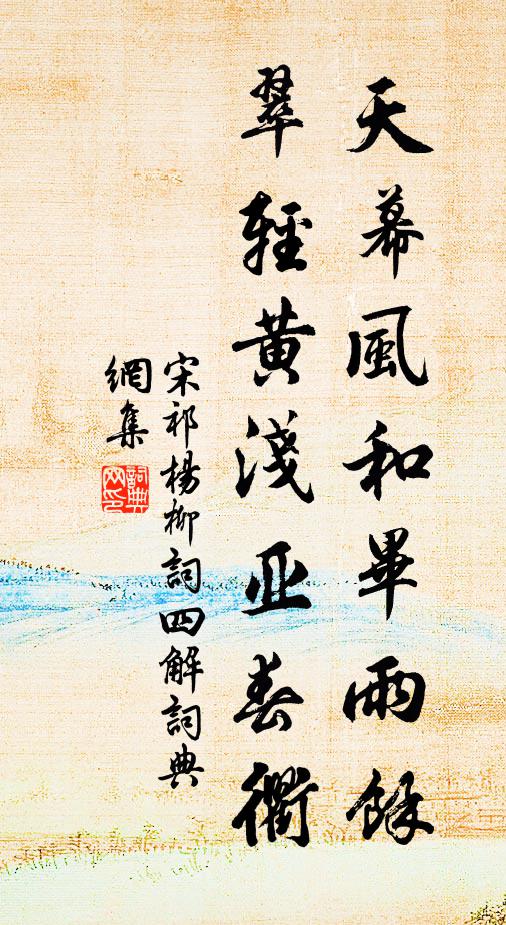 天幕風和畢雨餘
翠輕黃淺亚春衢
宋祁楊柳詞四解詞典
網集
詞典
网印